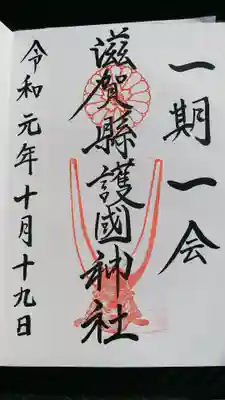 一期一会
滋賀縣護國神社
令和元年十月十九日